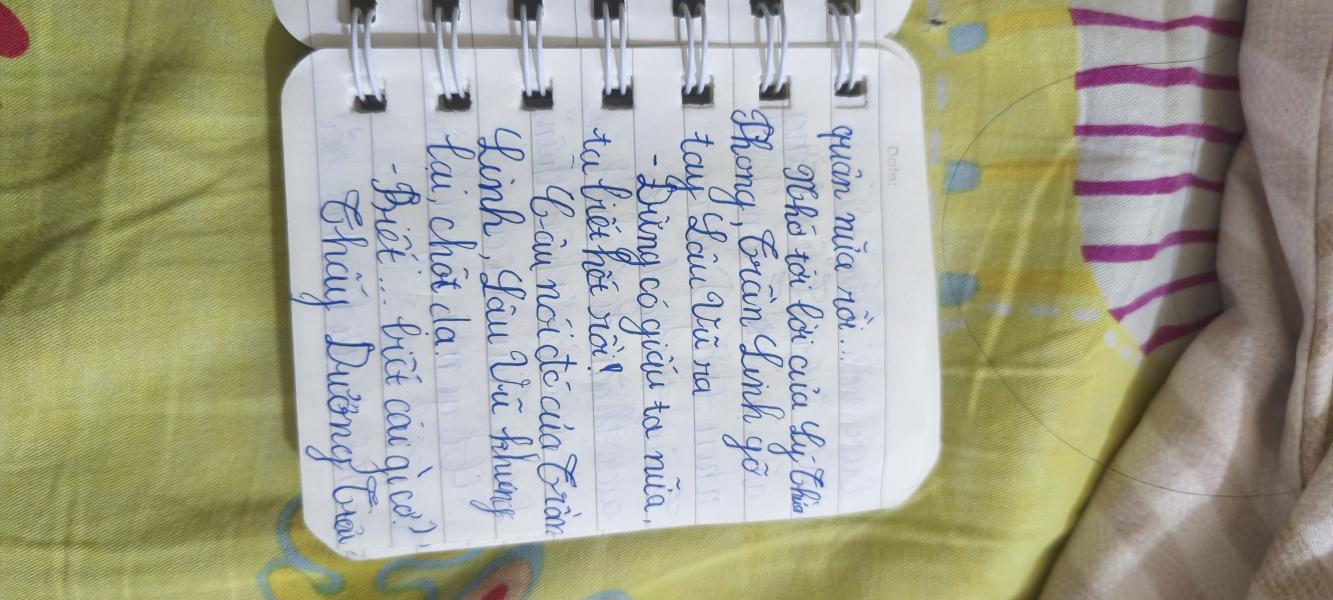 Date:
quân nữa rồi...
Nhớ tới lời của Lý Thừa
Phong, Trần Linh gỡ
tay Lâu Vũ ra
- Đừng có giấu ta nữa,
ta biết hết rồi!
Câu nói đó của Trần
Linh, Lâu Vũ khựng
lại, chột dạ.
- Biết... biết cái gì cơ?
Thấy Dương Tiêu